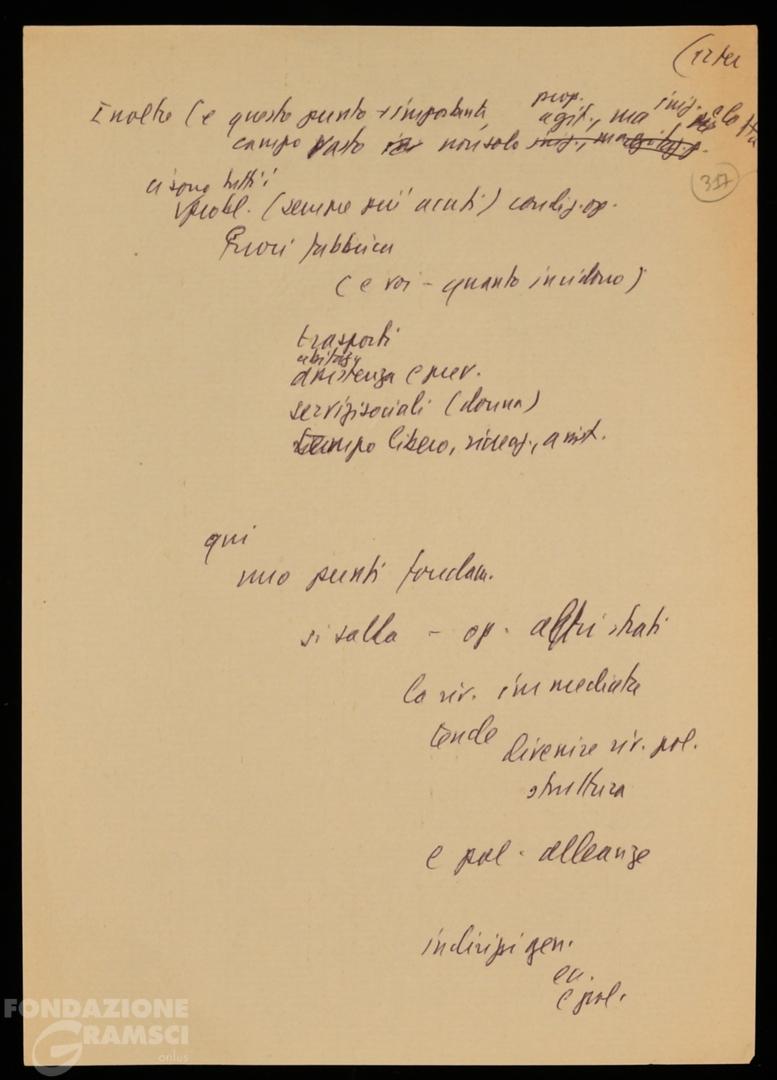 (12 ter
Inoltre (e questo punto + importante,
prop.
agit., ma iniz. e lotta
campo vasto non solo
317
ci sono tutti i
probl. (sempre più acuti) condiz. op.
fuori fabbrica
(e voi - quanto incidono)
trasporti
abitaz.
assistenza e prev.
servizi sociali (donna)
tempo libero, ricreaz., assist.
qui
uno punti fondam.
si salda - op. altri strati
la riv. immediata
tende divenire riv. pol.
struttura
e pol. alleanze
indirizzi gen.
ec.
e pol.
FONDAZIONE
GRAMSCI
onlus